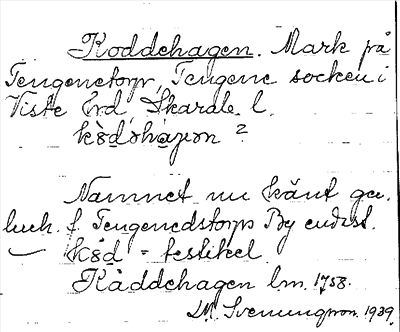 Koddehagen. Mark på
Tengenetorp, Tengene socken i
Viste hrd, Skarab. l.
kòdohaɡən ?
Namnet nu känt gm
luck. f. Tengenetorps By endast.
kòd = testikel
Kåddehagen lm. 1758.
D. M. Svenungsson. 1939.